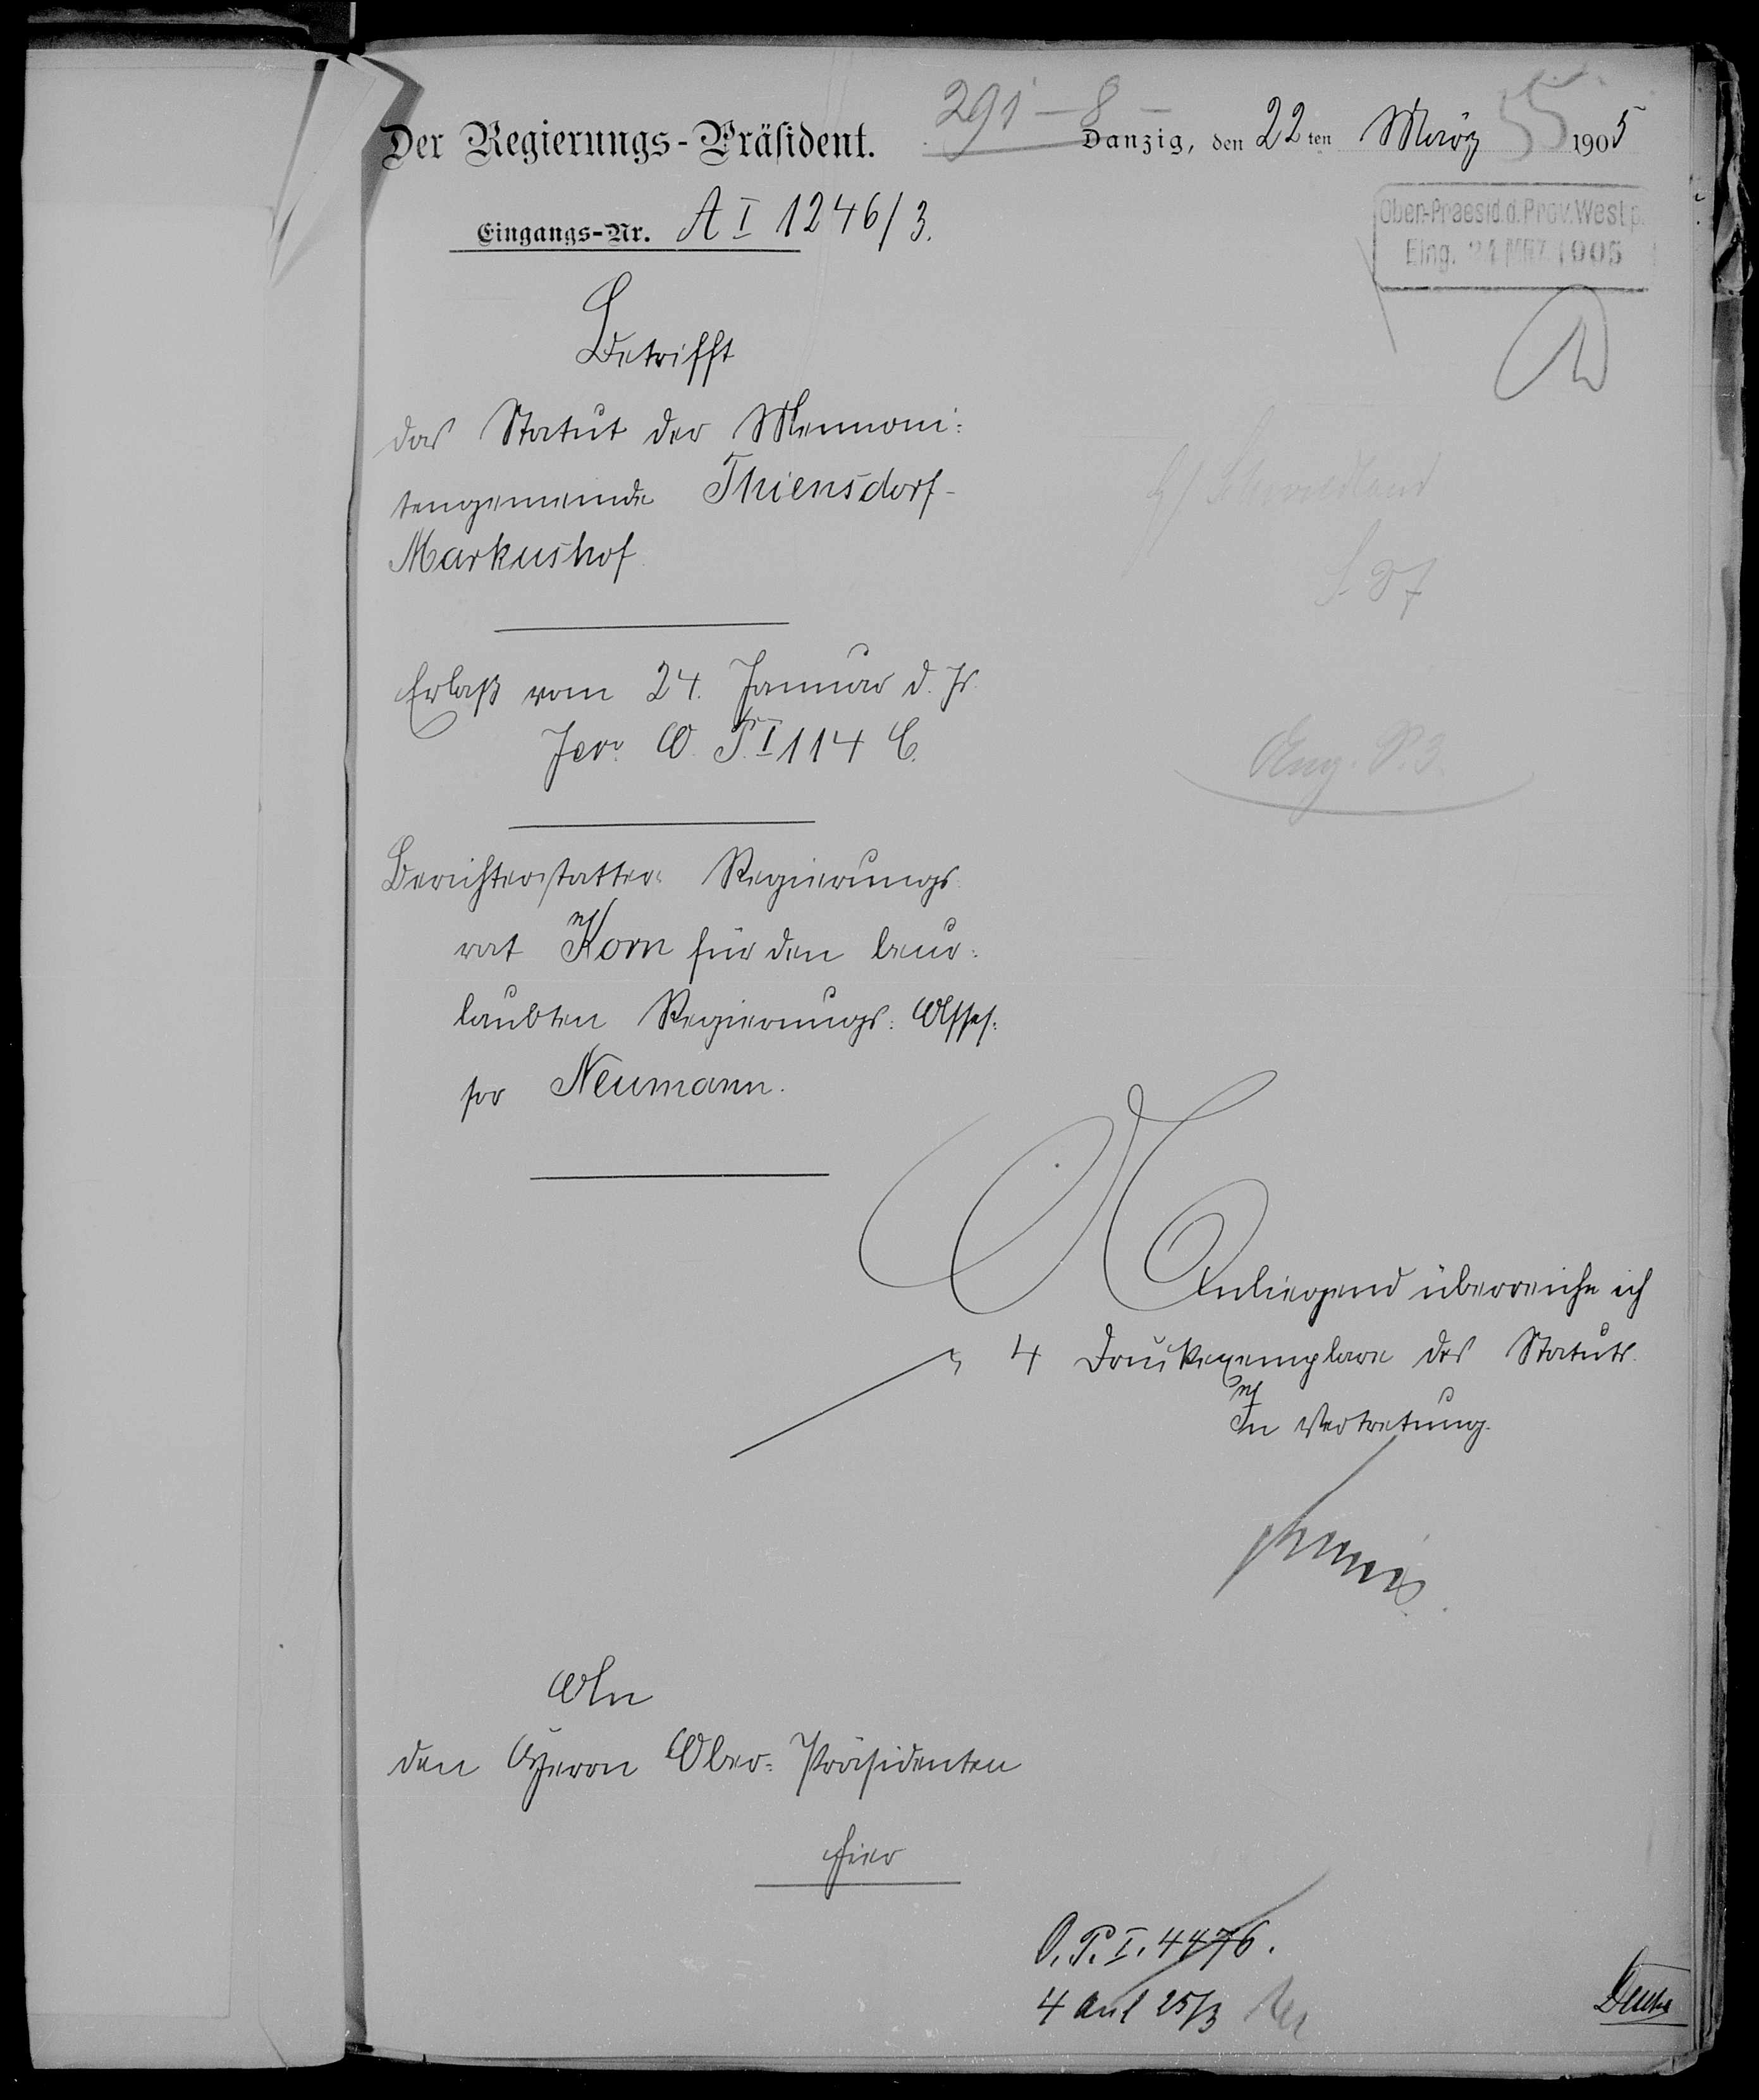 291-8-
Der Regierungs-Präsident.
Danzig, den 22ten März 1905
55
Eingangs-Nr. A I 1246/3.
Ober-Praesid. d. Prov. Westp.
Eing. 24 MRZ 1905
Betrifft
das Statut der Mennoni-
tengemeinde Thiensdorf-
Markushof.
Erlaß vom 24. Januar d. Js.
O. P. I 114 C.
Berichterstatter: Regierungs-
rat Korn für den beur-
laubten Regierungs-Asses-
sor Neumann.
Anliegend überreiche ich
4 Druckexemplare des Statuts.
In Vertretung.
An
den Herrn Ober-Präsidenten
hier
O. P. I. 4476.
4 Anl 25/3